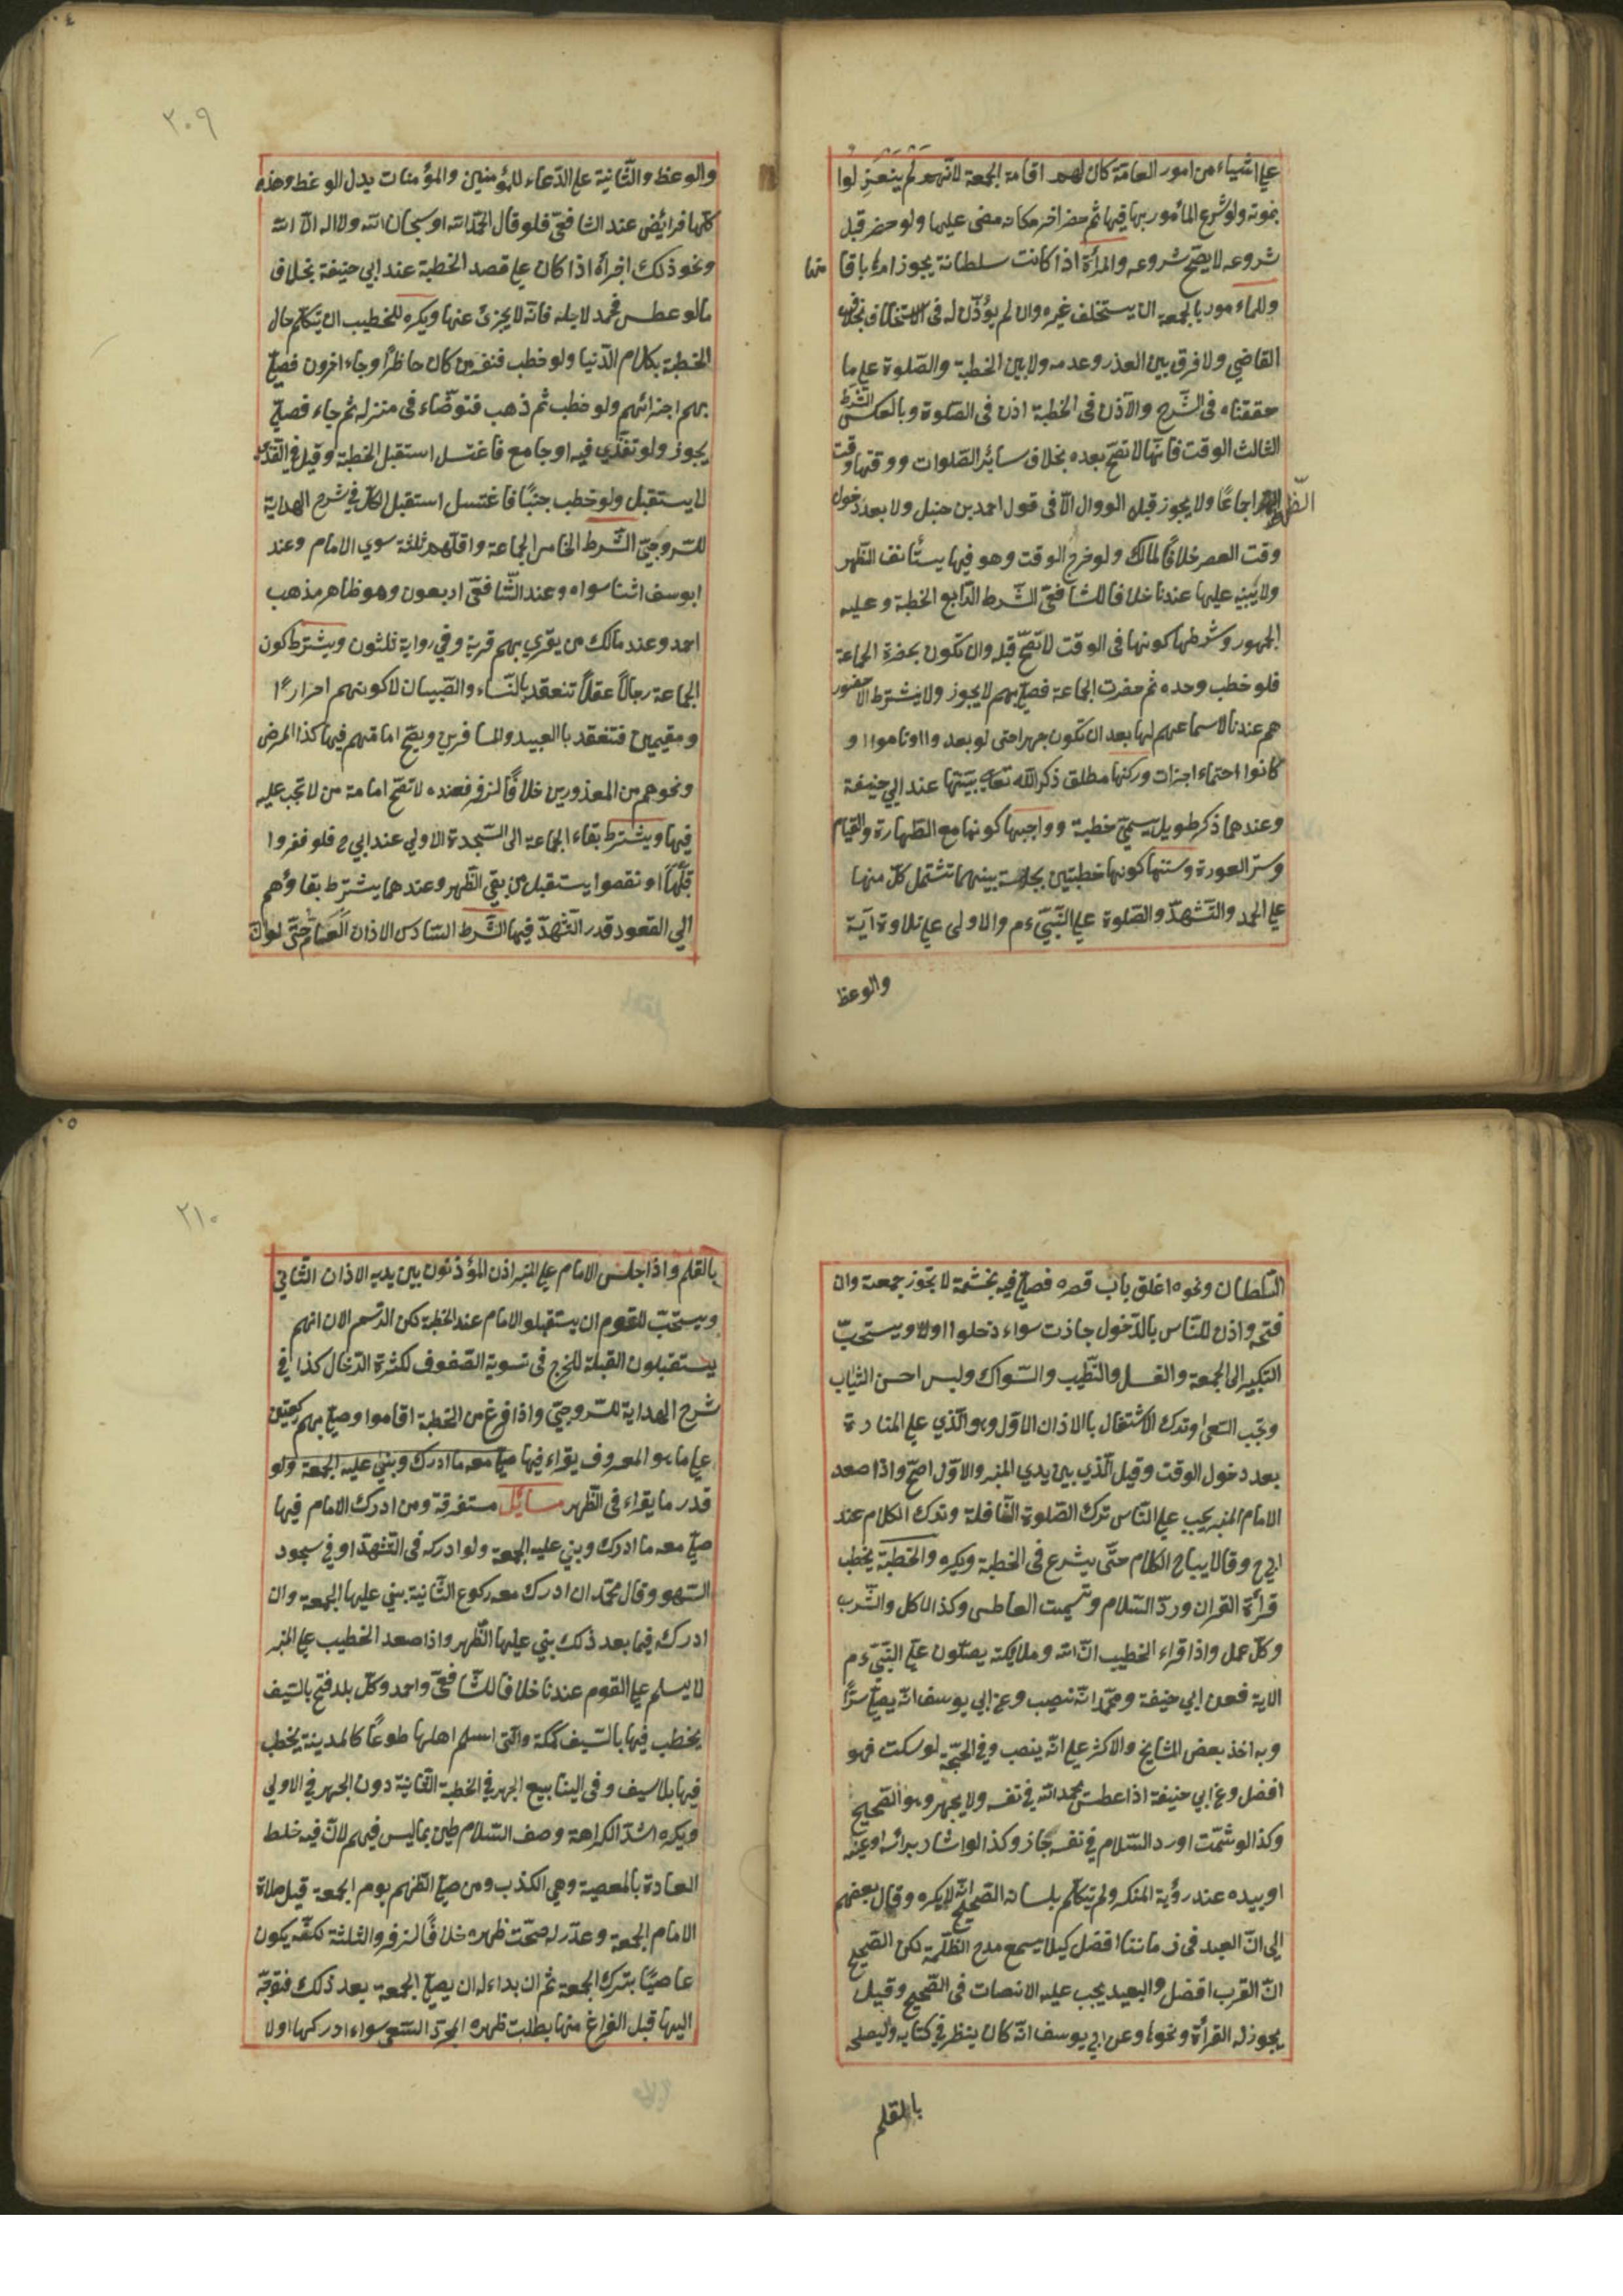 علي اشياء من امور العامة كان لهم اقامة الجمعة لانهم لم ينعزلوا
بموته ولو شرع المأمور بها فيها ثم حضر اخر مكانه مضى عليها ولو حضر قبل
شروعه لا يصح شروعه والمرأة اذا كانت سلطانة يجوز امرها باقا متها
وللماءمور بالجمعة ان يستخلف غيره وان لم يؤذن له فى الاستخلاف بخلاف
القاضي ولا فرق بين العذر وعدمه ولا بين الخطبة والصلوة على ما
حققناه فى الشرح والاذن فى الخطبة اذن فى الصلوة وبالعكس الشرط
الثالث الوقت فانها لا تصح بعده بخلاف سائر الصلوات ووقتها وقت
الظهر اجماعًا ولا يجوز قبله الووال الا فى قول احمد بن حنبل ولا بعد دخول
وقت العصر خلافًا لمالك ولو خرج الوقت وهو فيها يستأنف الظهر
ولا يبنيه عليها عندنا خلافا للشافعي الشرط الرابع الخطبة وعليه
الجمهور وشرطها كونها فى الوقت لا تصح قبله وان تكون بحضرة الجماعة
فلو خطب وحده ثم حضرت الجماعة فصلى بهم لا يجوز ولا يشترط الا حضور
هم عندنا لا سماعهم لها بعد ان تكون جهرا حتى لو بعد وا او ناموا او
كانوا اجزات وركنها مطلق ذكر الله تعالى بنيتها عند ابي حنيفة
وعندهما ذكر طويل يسمى خطبة وواجبها كونها مع الطهارة والقيام
وستر العورة وسننها كونها خطبتين بجلسة بينهما تشتمل كل منها
على الحمد والتشهد والصلوة على النبي ءم والاولى على تلاوة آية
والوعظ
٢٠٩
والوعظ والثانية على الدعاء للمؤمنين والمؤمنات بدل الوعظ وهذه
كلها فرائض عند الشافعي فلو قال الحمد لله او سبحان الله ولا اله الا الله
ونحو ذلك اجزأه اذا كان على قصد الخطبة عند ابي حنيفة بخلاف
مالو عطس فحمد لاجله فانه لا يجزئ عنها ويكره للخطيب ان يتكلم حال
الخطبة بكلام الدنيا ولو خطب فنفر من كان حاظرًا وجاء اخرون فصلى
بهم اجزائهم ولو خطب ثم ذهب فتوضاء فى منزله ثم جاء فصلى
يجوز ولو تغدي فيه او جامع فاغتسل استقبل الخطبة وقيل في
لا يستقبل ولو خطب جنبًا فاغتسل استقبل الكل في شرح الهداية
للسروجي الشرط الخامس الجماعة واقلهم ثلثة سوي الامام وعند
ابوسف اثنا سواه وعند الشافعي اربعون وهو ظاهر مذهب
احمد وعند مالك من يقري بهم قرية وفي رواية ثلثون ويشترط كون
الجماعة رجالاً عقلاً تنعقد بالنساء والصبيان لا كونهم احرارًا
ومقيمين فتنعقد بالعبيد والمسافرين ويصح امامتهم فيها كذا المرض
ونحوهم من المعذورين خلافًا لزفر فعنده لا تصح امامة من لا تجب عليه
فيها ويشترط بقاء الجماعة الى السجدة الاولي عند ابي ح فلو نفروا
قبلها او نقصوا يستقبل من بقي الظهر وعندهما يشترط بقاؤهم
الي القعود قدر التشهد فيها الشرط السادس الاذان العام حتى لو ان
السلطان ونحوه اغلق باب قصره فصلى فيه بخشمه لا تجوز جمعة وان
فتحه واذن للناس بالدخول جازت سواء دخلوا اولا ويستحب
التكبير الى الجمعة والغسل والتطيب والسواك ولبس احسن الثياب
وتجب السعى وترك الاشتغال بالاذان الاول وهو الذي على المنارة
بعد دخول الوقت وقيل الذي بين يدي المنبر والاول اصح واذا صعد
الامام المنبر يجب على الناس ترك الصلوة النافلة وترك الكلام عند
ابي ح وقالا يباح الكلام حتى يشرع فى الخطبة ويكره والخطبة يخطب
قرأة القران ورد السلام وتشميت العاطس وكذا الاكل والشرب
وكل عمل واذا قراء الخطيب ان الله وملايكته يصلون على النبي ءم
الاية فعن ابي حنيفة ومحمد انه ينصت وعن ابي يوسف انه يصلي سرًّا
وبه اخذ بعض المشايخ والاكثر على انه ينصت وفي الحجة لو سكت فهو
افضل وعن ابي حنيفة اذا عطس يحمد الله في نفسه ولا يجهر وهو الصحيح
وكذا لو شمت او رد السلام في نفسه جاز وكذا لو اشار برأسه او عينه
او بيده عند رؤية المنكر ولم يتكلم بلسانه الصحيح انه لا يكره وقال بعضهم
الى ان البعد فى زماننا افضل كيلا يسمع مدح الظلمة لكن الصحيح
ان القرب افضل والبعيد يجب عليه الانصات فى الصحيح وقيل
يجوز له القرأة ونحوها وعن ابي يوسف انه كان ينظر في كتابه ويصلحه
بالقلم
٢١٠
بالقلم واذا جلس الامام على المنبر اذن المؤذنون بين يديه الاذان الثاني
ويستحب للقوم ان يستقبلو الامام عند الخطبة لكن الرسم الان انهم
يستقبلون القبلة للحرج فى تسوية الصفوف لكثرة الزحام كذا في
شرح الهداية للسروجي واذا فرغ من الخطبة اقاموا وصلى بهم ركعتين
على ما هو المعروف يقراء فيها صلى معه ما ادرك وبنى عليه الجمعة ولو
قدر ما يقراء فى الظهر مسائل متفرقة ومن ادرك الامام فيها
صلى معه ما ادرك وبني عليه الجمعة ولو ادركه فى التشهد او في سجود
السهو وقال محمد ان ادرك معه ركوع الثانية بني عليها الجمعة وان
ادركه فيما بعد ذلك بني عليها الظهر واذا صعد الخطيب على المنبر
لا يسلم على القوم عندنا خلافا للشافعي واحمد وكل بلد فتح بالسيف
يخطب فيها بالسيف كمكة والتى اسلم اهلها طوعًا كالمدينة يخطب
فيها بلا سيف وفى الينابيع الجهر في الخطبة الثانية دون الجهر في الاولي
ويكره اشد الكراهة وصف السلاطين بما ليس فيهم لان فيه خلط
العبادة بالمعصية وهي الكذب ومن صلى الظهر يوم الجمعة قبل صلاة
الامام الجمعة وعذر له صحت ظهره خلافًا لزفر والثلثة لكنه يكون
عاصيًا بترك الجمعة ثم ان بداء له ان يصلي الجمعة بعد ذلك فتوجه
اليها قبل الفراغ منها بطلت ظهره السعي سواء ادركها اولا